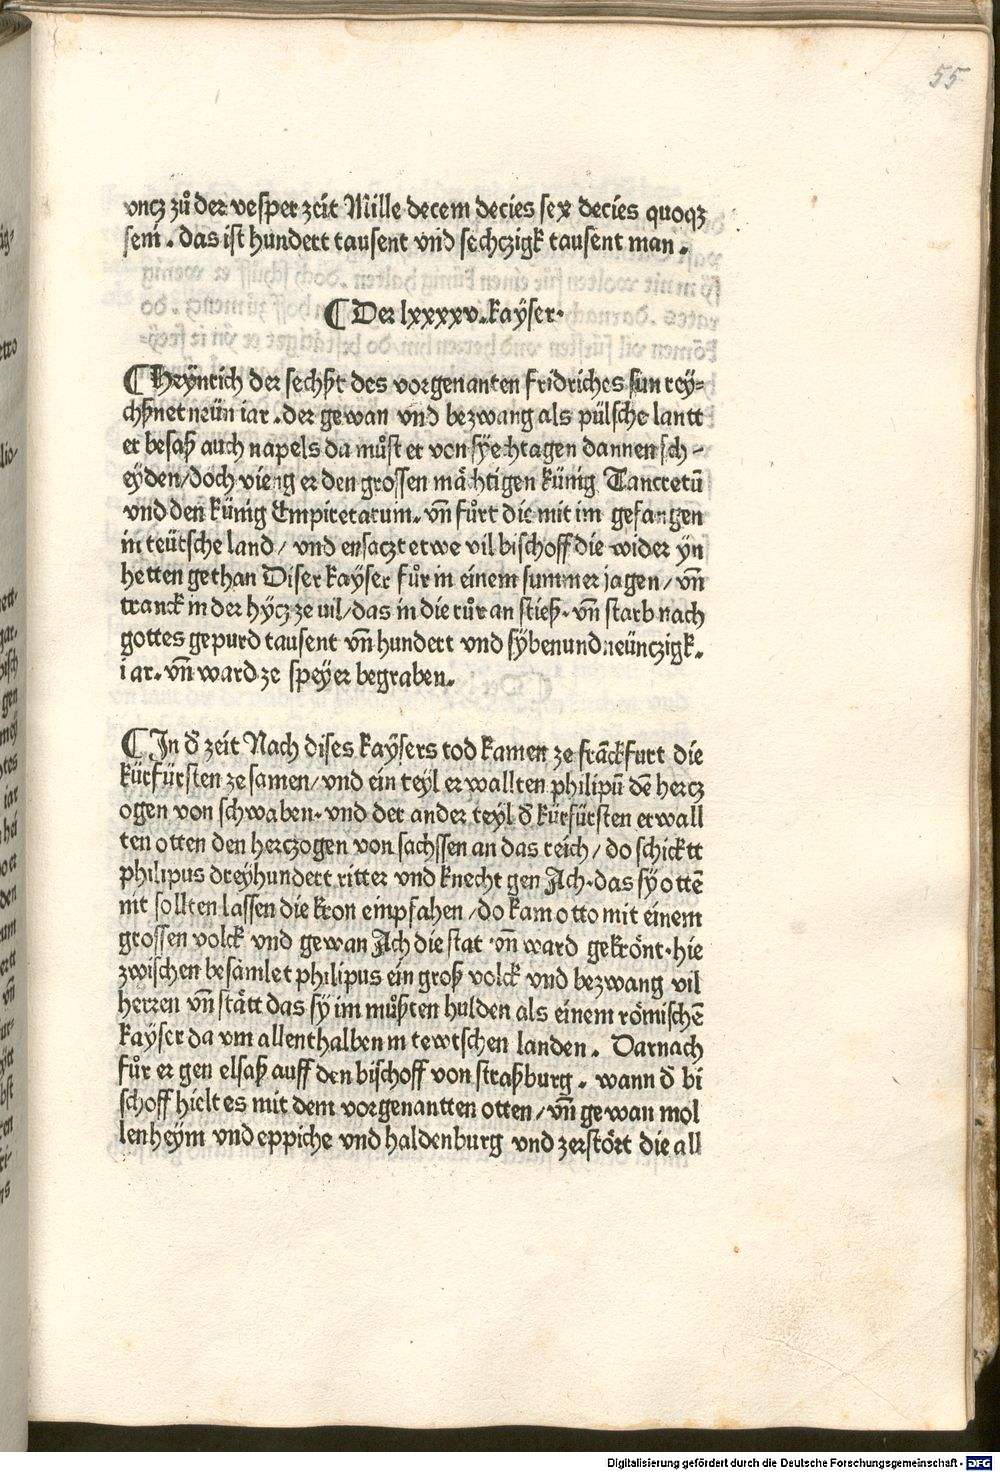 55
vncz zů der vesper zeit Mille decem decies sex decies quoqꝫ
semi . das ist hundert tausent vnd sechczigk tausent man .
¶ Der lxxxxv. kayser.
¶ Heynrich der sechßt des vorgenanten fridriches sun rey⸗
chßnet neün iar .der gewan vnd bezwang als pülsche lantt
er besaß auch napels da můst er von syechtagen dannen sch⸗
eyden/doch vieng er den grossen mächtigen künig Tancretū
vnd den künig Empiretarum. vn̄ fůrt die mit im gefangen
in teütsche land/ vnd ensaczt etwe vil bischoff die wider yn
hetten gethan Diser kayser fůr in einem summer jagen/ vn̄
tranck in der hycz ze uil/das in die růr an stieß. vn̄ starb nach
gottes gepurd tausent vn̄ hundert vnd sybenundneünczigk.
iar. vn̄ ward ze speyer begraben.
¶ In d̄ zeit Nach dises kaysers tod kamen ze frāckfurt die
kürfürsten ze samen/ vnd ein teyl erwallten philipū dē hercz
ogen von schwaben. vnd der ander teyl d̄ kürfürsten erwall
ten otten den herczogen von sachssen an das reich/ do schicktt
philipus dreyhundert ritter vnd knecht gen Ach.das sy ottē
nit sollten lassen die kron empfahen /do kam otto mit einem
grossen volck vnd gewan Ach die stat .vn̄ ward gekrönt.hie
zwischen besamlet philipus ein groß volck vnd bezwang vil
herren vn̄ stätt das sy im můßten hulden als einem römischē
kayser da vm allenthalben in tewtschen landen. Darnach
fůr er gen elsaß auff den bischoff von straßburg . wann d̄ bi
schoff hielt es mit dem vorgenantten otten/ vn̄ gewan mol
lenheym vnd eppiche vnd haldenburg vnd zerstört die all
Digitalisierung gefördert durch die Deutsche Forschungsgemeinschaft - DFG